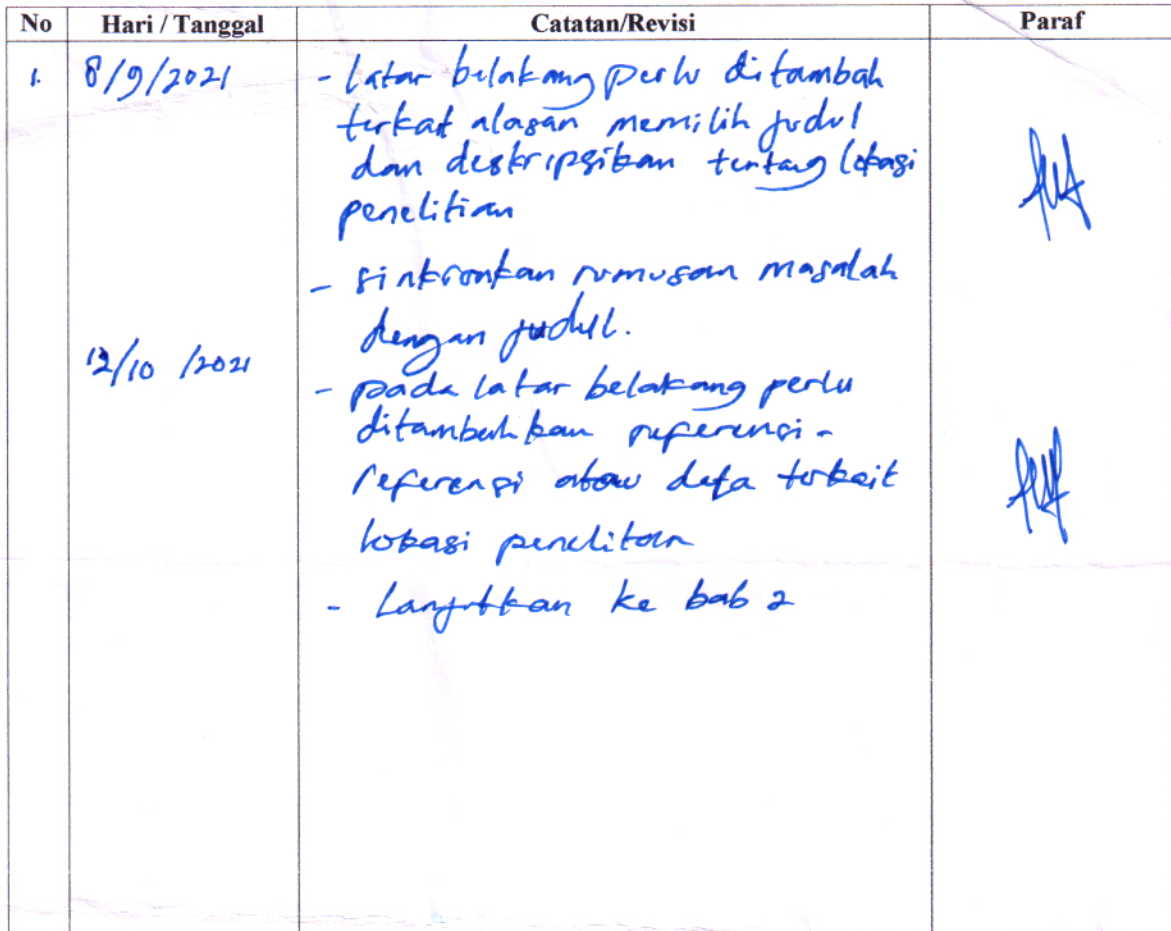 No Hari / Tanggal Catatan/Revisi Paraf
1. 8/9/2021 - latar belakang perlu ditambah
terkait alasan memilih judul
dan deskripsikan tentang lokasi
penelitian
- sinkronkan rumusan masalah
dengan judul.
12/10/2021
- pada latar belakang perlu
ditambahkan referensi-
referensi atau data terkait
lokasi penelitian
- Lanjutkan ke bab 2